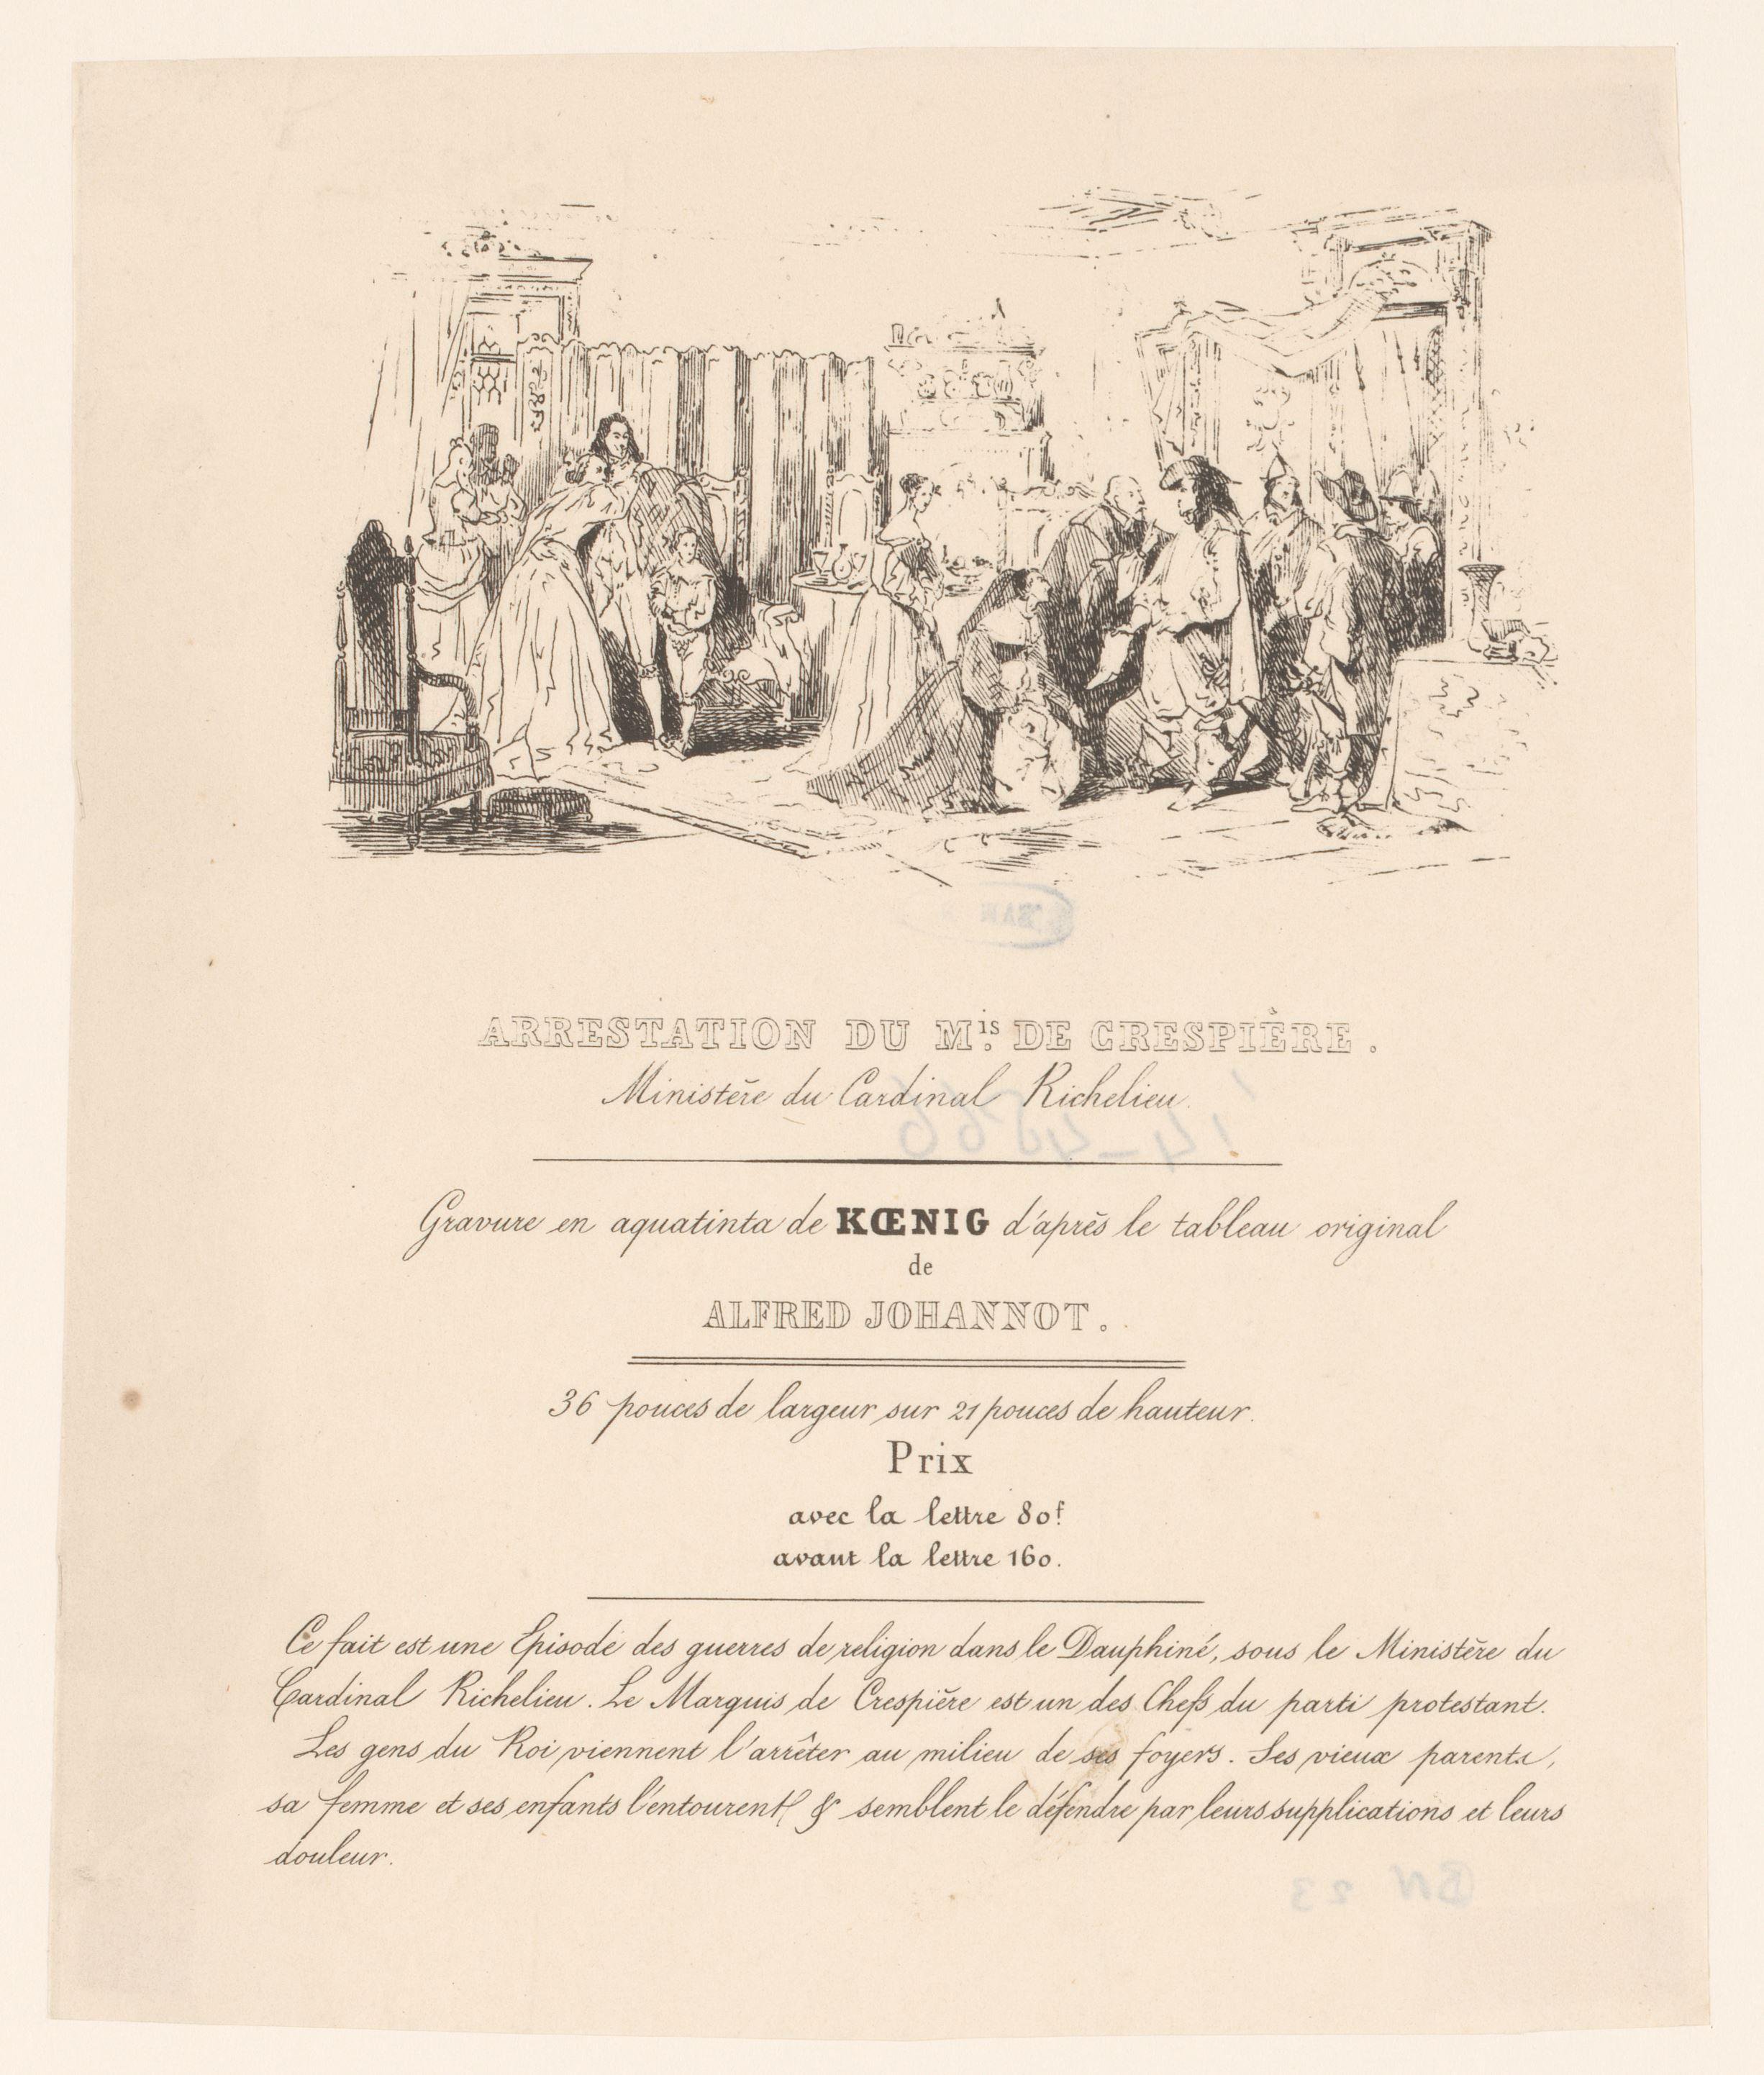 ARRESTATION DU M.is DE CRESPIÈRE.
Ministère du Cardinal Richelieu.
Gravure en aquatinta de KŒNIG d'après le tableau original
de
ALFRED JOHANNOT.
36 pouces de largeur sur 21 pouces de hauteur.
Prix
avec la lettre 80f.
avant la lettre 160.
Ce fait est une Episode des guerres de religion dans le Dauphiné, sous le Ministère du
Cardinal Richelieu. Le Marquis de Crespière est un des Chefs du parti protestant.
Les gens du Roi viennent l'arrêter au milieu de ses foyers. Ses vieux parents,
sa femme et ses enfants l'entourent & semblent le défendre par leurs supplications et leurs
douleur.
BN 23